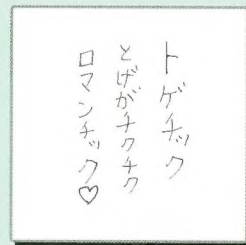 トゲチック
とげがチクチク
ロマンチック♡